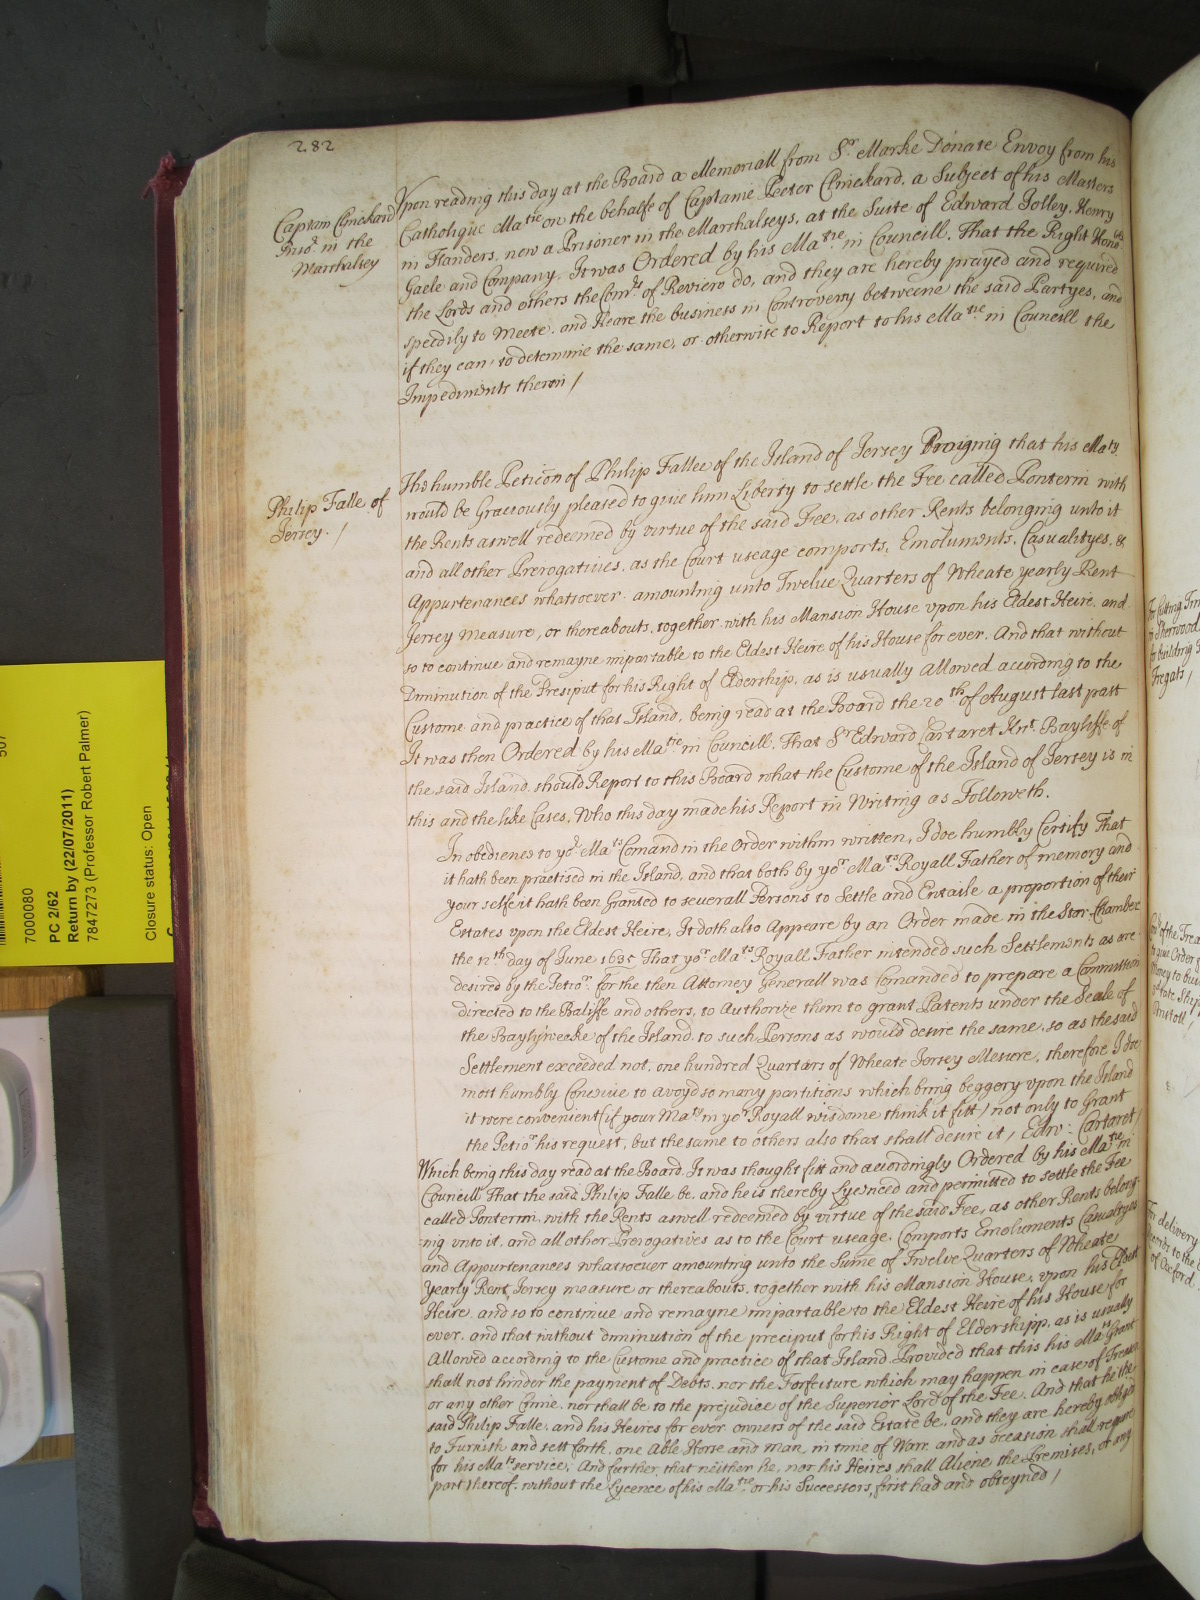 282
Captain Clinckard
Prisor. in the
Marshalsey
Vpon reading this day at the Board a Memoriall from Sr. Marke Donate Envoy from his
Catholique Matie on the behalfe of Captaine Peeter Clinckard, a Subject of his Masters
in Flanders, now a Prisoner in the Marshalseys, at the Suite of Edward Jolley, Henry
Gaele and Company, It was Ordered by his Matie. in Councill, That the Right Hono:ble
the Lords and others the Comrs. of Reviero do, and they are hereby prayed and required
speedily to Meete, and Heare the business in Controversy betweene the said Partyes, and
if they can, to determine the same, or otherwise to Report to his Matie in Councill the
Impediments therein /
Philip Falle of
Jersey. /
The humble Peticon of Philip Fallee of the Island of Jersey Praying that his Maty.
would be Graciously pleased to giue him Liberty to settle the Fee called Ponterin with
the Rents aswell redeemed by virtue of the said Fee, as other Rents belonging unto it
and all other Prerogatiues, as the Court useage comports, Emolumts. Casualityes, &
Appurtenances whatsoever amounting unto Twelue Quarters of Wheate yearly Rent
Jersey Measure, or thereabouts, together with his Mansion House vpon his Eldest Heire, and
so to continue and remayne impartable to the Eldest Heire of his House for ever, And that without
Diminution of the Presiput for his Right of Eldership, as is usually allowed according to the
Custome and practice of that Island, being read at the Board the 20th of August last past
It was then Ordered by his Matie. in Councill, That Sr Edward Cartaret Knt. Bayliffe of
the said Island, should Report to this Board what the Custome of the Island of Jersey is in
this and the like Cases, Who this day made his Report in Writing as Followeth.
In obedienes to yor. Mats. Comand in the Order within written, I doe humbly Certify That
it hath been practised in the Island, and that both by yor Mats. Royall Father of memory and
your selfe it hath been Granted to severall Persons to Settle and Entaile a proportion of their
Estates vpon the Eldest Heire, It doth also Appeare by an Order made in the Star-Chamber
the 12th day of June 1635 That yor Mats Royall Father intended such Settlements as are
desired by the Petior. for the then Attorney Generall was Comanded to prepare a Commission
directed to the Baliffe and others, to Authorize them to grant Patents under the Seale of
the Baylyweeke of the Island, to such Persons as would desire the same, so as the said
Settlement exceeded not, one hundred Quarters of Wheate Jersey Mesure, therefore I doe
most humbly Conceiue to avoyd so many partitions which bring beggery vpon the Island
it were convenient (if your Maty in yor Royall wisdome think it fitt) not only to Grant
the Petior his request, but the same to others also that shall desire it / Edw: Cartaret /
Which being this day read at the Board, It was thought fitt and accordingly Ordered by his Matie in
Councill That the said Philip Falle be, and he is thereby Lycenced and permitted to settle the Fee
called Ponterin, with the Rents aswell redeemed by virtue of the said Fee, as other Rents belong-
=ing vnto it, and all other Prerogatives as to the Court useage, Comports Emoluments Casualtyes
and Appurtenances whatsoever amounting unto the Sume of Twelve Quarters of Wheate
Yearly Rent, Jersey measure or thereabouts, together with his Mansion House, vpon his Eldest
Heire, and so to continue and remayne impartable to the Eldest Heire of his House for
ever, and that without diminution of the preciput for his Right of Eldershipp, as is usually
Allowed according to the Custome and practice of that Island. Provided that this his Mats Grant
shall not hinder the payment of Debts, nor the Forfeiture which may happen in case of Treason
or any other Crime, nor shall be to the prejudice of the Superior Lord of the Fee. And that he the
said Philip Falle, and his Heires for ever owners of the said Estate be, and they are hereby obliged
to Furnish and sett forth, one Able Horse and man, in time of Warr, and as occasion shall require
for his Mats service, And further, that neither he, nor his Heires shall Aliene the Premises, or any
part thereof, without the Lycence of his Matie or his Successors, first had and obteyned /
7000080
PC 2/62
Return by (22/07/2011)
7847273 (Professor Robert Palmer)
Closure status: Open